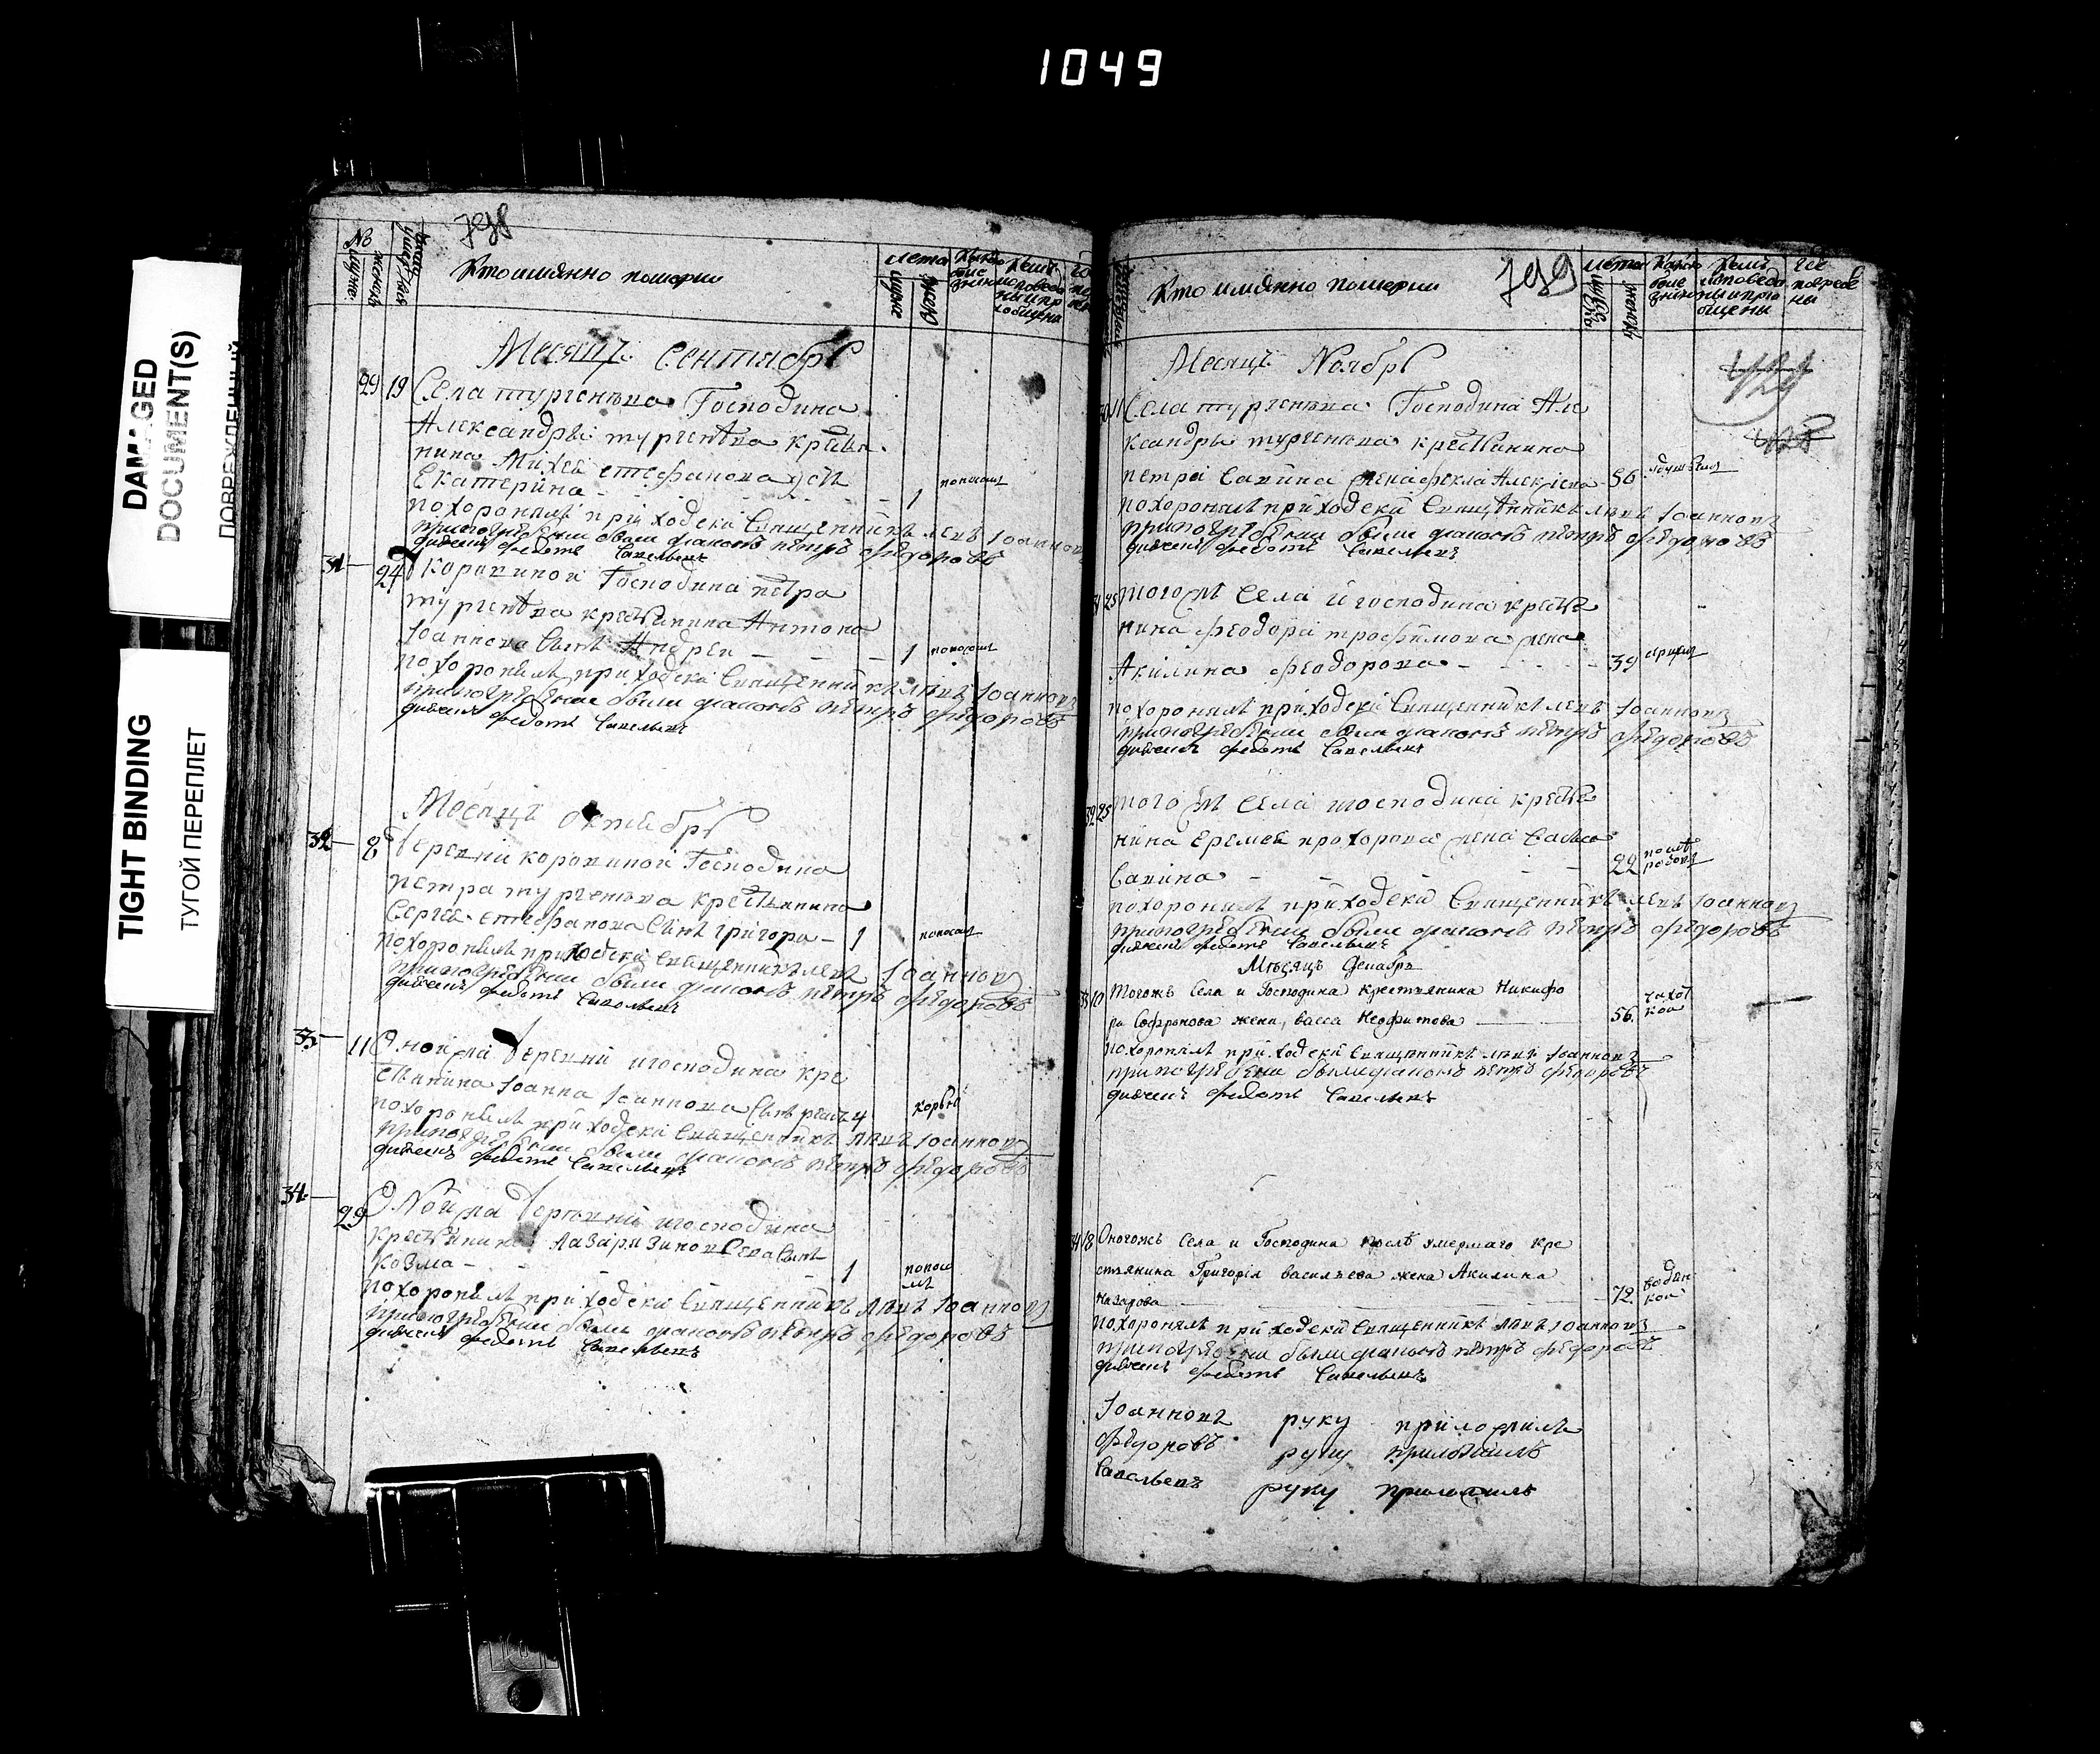 1049
DAMAGED
DOCUMENT(S)
ПОВРЕЖДЕННЫЙ
TIGHT BINDING
ТУГОЙ ПЕРЕПЛЕТ
798
№ муже. женск
Кто имянно померли
лета
Месяцъ Сентябрь
29 19 Села тургенева Господина
Александра тургенева крестья
нина Михея стефанова дочь
Екатерина - 1 поносом
похоронилъ приходской Священникъ левъ Iоанновъ
припогребении были диаконъ петръ федоровъ
дьячекъ федотъ Савельевъ
31 24 Коровиной Господина петра
тургенева крестьянина Антона
Iоаннова сынъ Андреи - 1 поносом
похоронилъ приходской Священникъ левъ Iоанновъ
припогребении были диаконъ петръ федоровъ
дьячекъ федотъ Савельевъ
Месяцъ октябрь
32 8 деревни коровиной Господина
петра тургенева крестьянина
Сергея стефанова сынъ григори - 1 поносом
похоронилъ приходской священникъ левъ Iоанновъ
припогребении были диаконъ петръ федоровъ
дьячекъ федотъ Савельевъ
33 11 Оной жа деревни игосподина кре
стьянина Iоанна Iоаннова сынъ 4 корью
похоронилъ приходской священникъ левъ Iоанновъ
припогребении были диаконъ петръ федоровъ
дьячекъ федотъ Савельевъ
34 29 Оной жа деревни игосподина
крестьянина Лазаря сынъ
Козма - 1 поносо
мъ
похоронилъ приходской Священникъ левъ Iоанновъ
припогребении были диаконъ петръ федоровъ
дьячекъ федотъ Савельевъ
799
Кто имянно померли
лета
Месяцъ Ноябрь
11 Села тургенева Господина Але
ксандра тургенева крестьянина
петра Савина жена фекла Алексиева 56
похоронилъ приходской Священникъ левъ Iоанновъ
припогребении были диаконъ петръ федоровъ
дьячекъ федотъ Савельевъ
25 тогожъ Села игосподина крестья
нина феодора трофимова жена
Акилина феодорова - 39
похоронилъ приходской Священникъ левъ Iоанновъ
припогребении были диаконъ петръ федоровъ
дьячекъ федотъ Савельевъ
32 25 тогожъ Села игосподина крестья
нина Еремея прохорова жена
Савина - 22 после
родовъ
похоронилъ приходской Священникъ левъ Iоанновъ
припогребении были диаконъ петръ федоровъ
дьячекъ федотъ Савельевъ
Мѣсяцъ Декабрь
33 10 Тогожъ Села и Господина крестьянина Никифо
ра Софронова жена, васса Неофитова 56. чахот
кои
похоронилъ приходской Священникъ левъ Iоанновъ
припогребении были диаконъ петръ федоровъ
дьячекъ федотъ Савельевъ
18 Оногожъ Села и Господина послѣ умершаго кре
стьянина Григорія васильева жена Акилина
назарова 72. водян
кои
похоронилъ приходской Священникъ левъ Iоанновъ
припогребении были диаконъ петръ федоровъ
дьячекъ федотъ Савельевъ
Iоанновъ руку приложилъ
федоровъ руку приложилъ
Савельевъ руку приложилъ